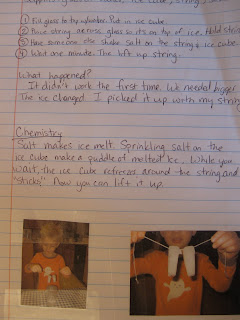 ① Fill glass to top w/water. Put in ice cube.
② Place string across glass so its on top of ice. Hold still
③ Have someone else shake salt on the string & ice cube.
④ Wait one minute. The lift up string.
What happened?
It didn't work the first time. We needed bigger
The ice changed. I picked it up with my string
Chemistry
Salt makes ice melt. Sprinkling salt on the
ice cube make a puddle of melted ice. While you
wait, the ice cube refreezes around the string and
"sticks." Now you can lift it up.